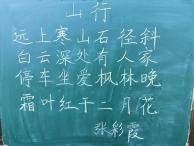 山行
远上寒山石径斜
白云深处有人家
停车坐爱枫林晚
霜叶红于二月花
张彩霞